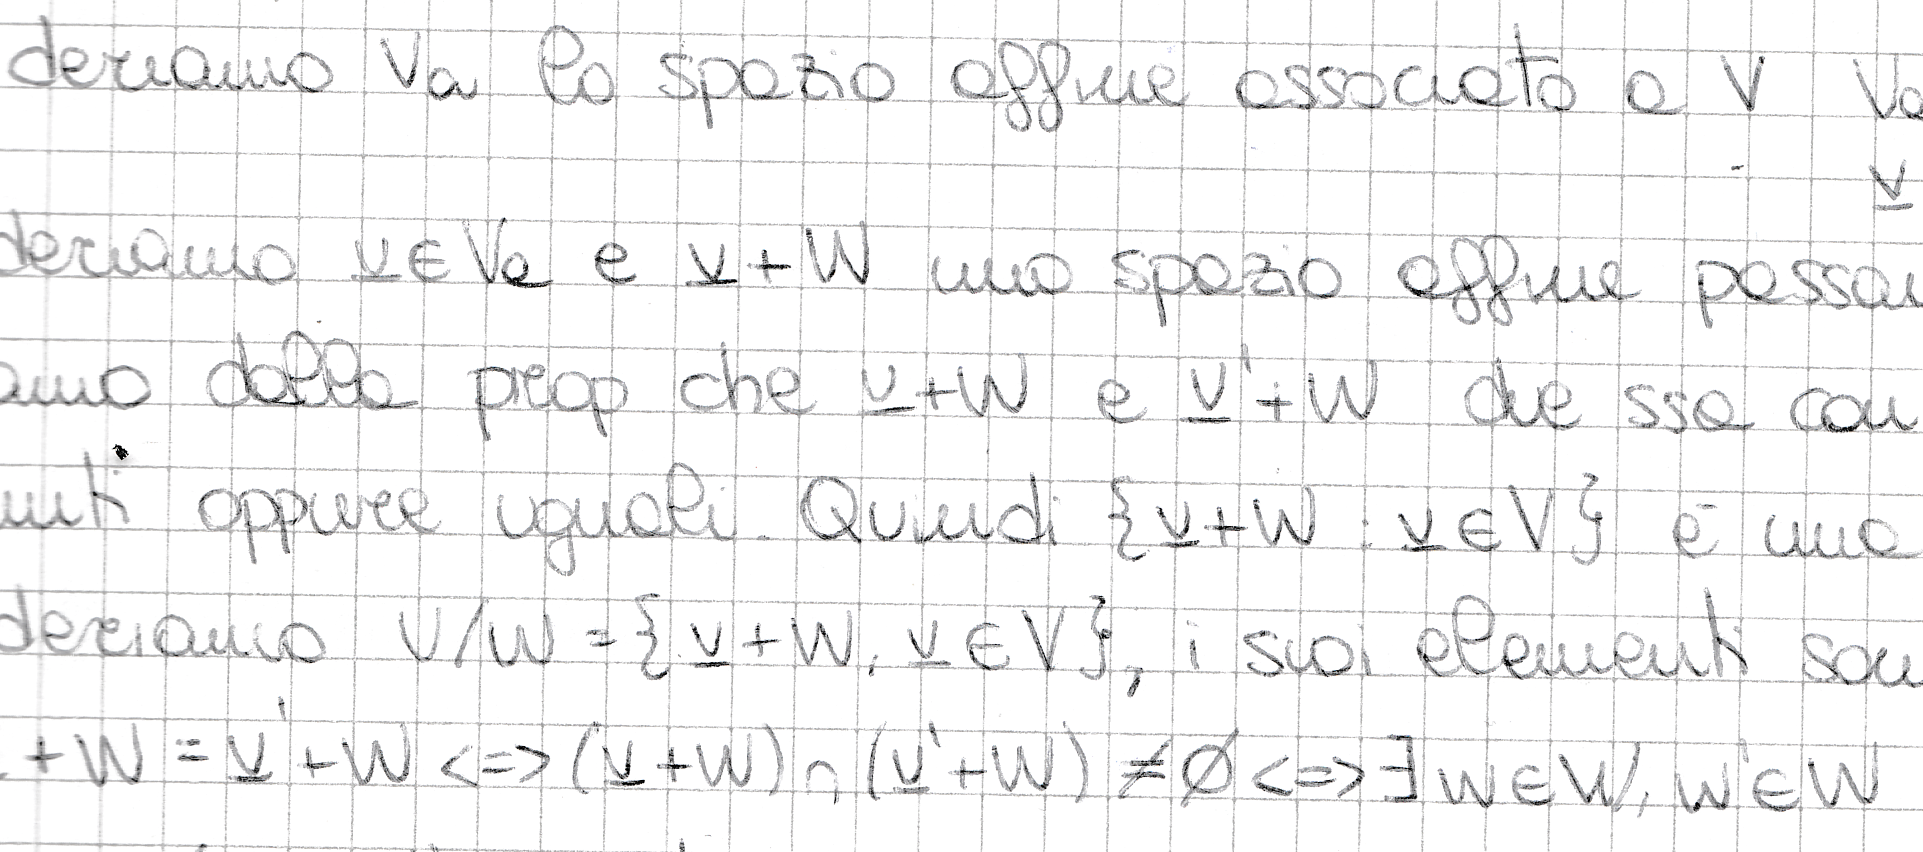 deriamo Va lo spazio affine associato a V Va
v
deriamo v ∈ Va e v + W uno spazio affine passan
amo dalla prop che v+W e v'+W due ssa con
unti oppure uguali. Quindi {v+W : v ∈ V} è una
deriamo V/W = {v+W, v ∈ V}, i suoi elementi son
+W = v'+W <=> (v+W) ∩ (v'+W) ≠ Ø <=> ∃ w ∈ W, w' ∈ W